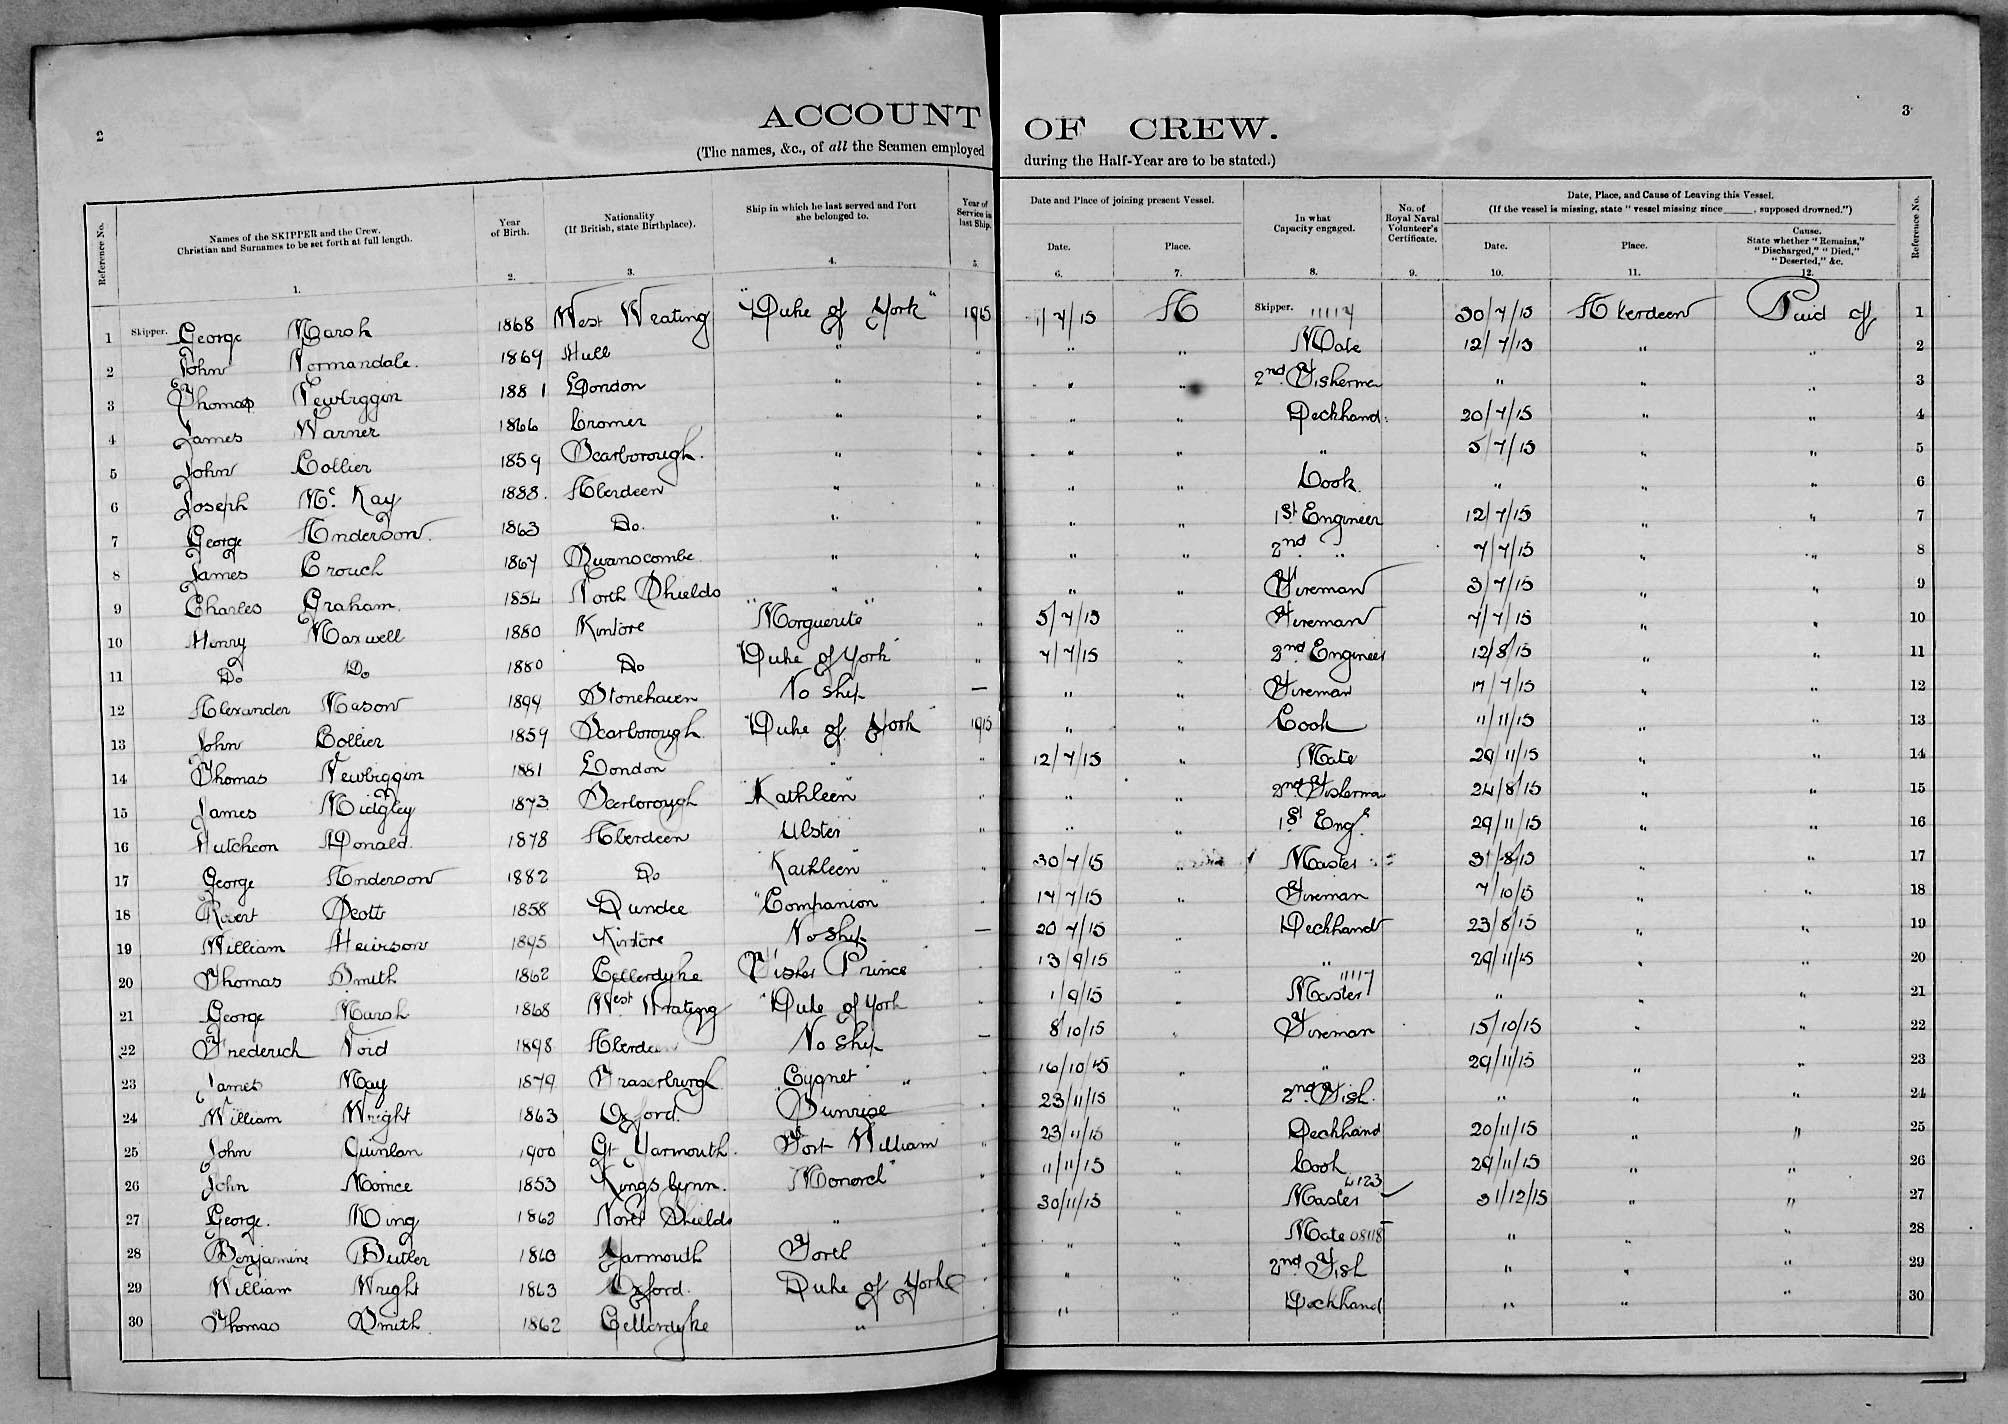 2
ACCOUNT OF CREW.
3
(The names, &c., of all the Seamen employed during the Half-Year are to be stated.)
Reference No.
Names of the SKIPPER and the Crew.
Christian and Surnames to be set forth at full length.
1.
Year of Birth.
2.
Nationality
(If British, state Birthplace).
3.
Ship in which he last served and Port she belonged to.
4.
Year of Service in last Ship.
5.
Date and Place of joining present Vessel.
Date.
6.
Place.
7.
In what Capacity engaged.
8.
No. of Royal Naval Volunteer's Certificate.
9.
Date, Place, and Cause of Leaving this Vessel.
(If the vessel is missing, state "vessel missing since ____, supposed drowned.")
Date.
10.
Place.
11.
Cause.
State whether "Remains,"
"Discharged," "Died,"
"Deserted," &c.
12.
Reference No.
1 Skipper. George Marsh 1868 West Wrating "Duke of York" 1915 1/7/15 A Skipper. 11117 30/7/15 Aberdeen Paid off 1
2 John Normandale. 1869 Hull " " " " Mate 12/7/15 " " 2
3 Thomas Newbiggin 1881 London " " " " 2nd Fisherman " " " 3
4 James Warner 1866 Cromer " " " " Deckhand. 20/7/15 " " 4
5 John Collier 1859 Scarborough. " " " " " 5/7/15 " " 5
6 Joseph Mc Kay 1888. Aberdeen " " " " Cook " " " 6
7 George Anderson. 1863 Do. " " " " 1st Engineer 12/7/15 " " 7
8 James Crouch 1867 Swanscombe " " " " 2nd " 7/7/15 " " 8
9 Charles Graham. 1854 North Shields " " " " Fireman 3/7/15 " " 9
10 Henry Maxwell 1880 Kintore "Morguerite" " 5/7/15 " Fireman 7/7/15 " " 10
11 Do Do 1880 Do "Duke of York" " 7/7/15 " 2nd Engineer 12/8/15 " " 11
12 Alexander Mason 1894 Stonehaven No ship — " " Fireman 17/7/15 " " 12
13 John Collier 1859 Scarborough. "Duke of York" 1915 " " Cook 11/11/15 " " 13
14 Thomas Newbiggin 1881 London " " 12/7/15 " Mate 29/11/15 " " 14
15 James Midgley 1873 Scarborough "Kathleen" " " " 2nd Fisherman 24/8/15 " " 15
16 Hutcheon Donald. 1878 Aberdeen Ulster " " " 1st Engr 29/11/15 " " 16
17 George Anderson 1882 Do "Kathleen" " 30/7/15 " Master 31/8/15 " " 17
18 Robert Scott 1858 Dundee "Companion" " 17/7/15 " Fireman 7/10/15 " " 18
19 William Hewison 1895 Kintore No ship — 20/7/15 " Deckhand 23/8/15 " " 19
20 Thomas Smith 1862 Cellardyke Fisher Prince " 13/9/15 " " 29/11/15 " " 20
21 George Marsh 1868 West Wrating "Duke of York " 1/9/15 " Master 11117 " " " 21
22 Frederich 1898 Aberdeen No ship — 8/10/15 " Fireman 15/10/15 " " 22
23 James May 1879 Fraserburgh "Cygnet" " 16/10/15 " " 29/11/15 " " 23
24 William Wright 1863 Oxford. "Sunrise " 23/11/15 " 2nd Fish. " " " 24
25 John Quinlan 1900 Gt Yarmouth. Fort William " 23/11/15 " Deckhand 20/11/15 " " 25
26 John 1853 Kings Lynn. "Monarch" " 11/11/15 " Cook 29/11/15 " " 26
27 George. King 1862 North Shields " " 30/11/15 " Master 4123 31/12/15 " " 27
28 Benjamine Butler 1860 Yarmouth Forth " " " Mate 08118 " " " 28
29 William Wright 1863 Oxford. Duke of York " " " 2nd Fish " " " 29
30 Thomas Smith 1862 Cellardyke " " " Deckhand " " " 30